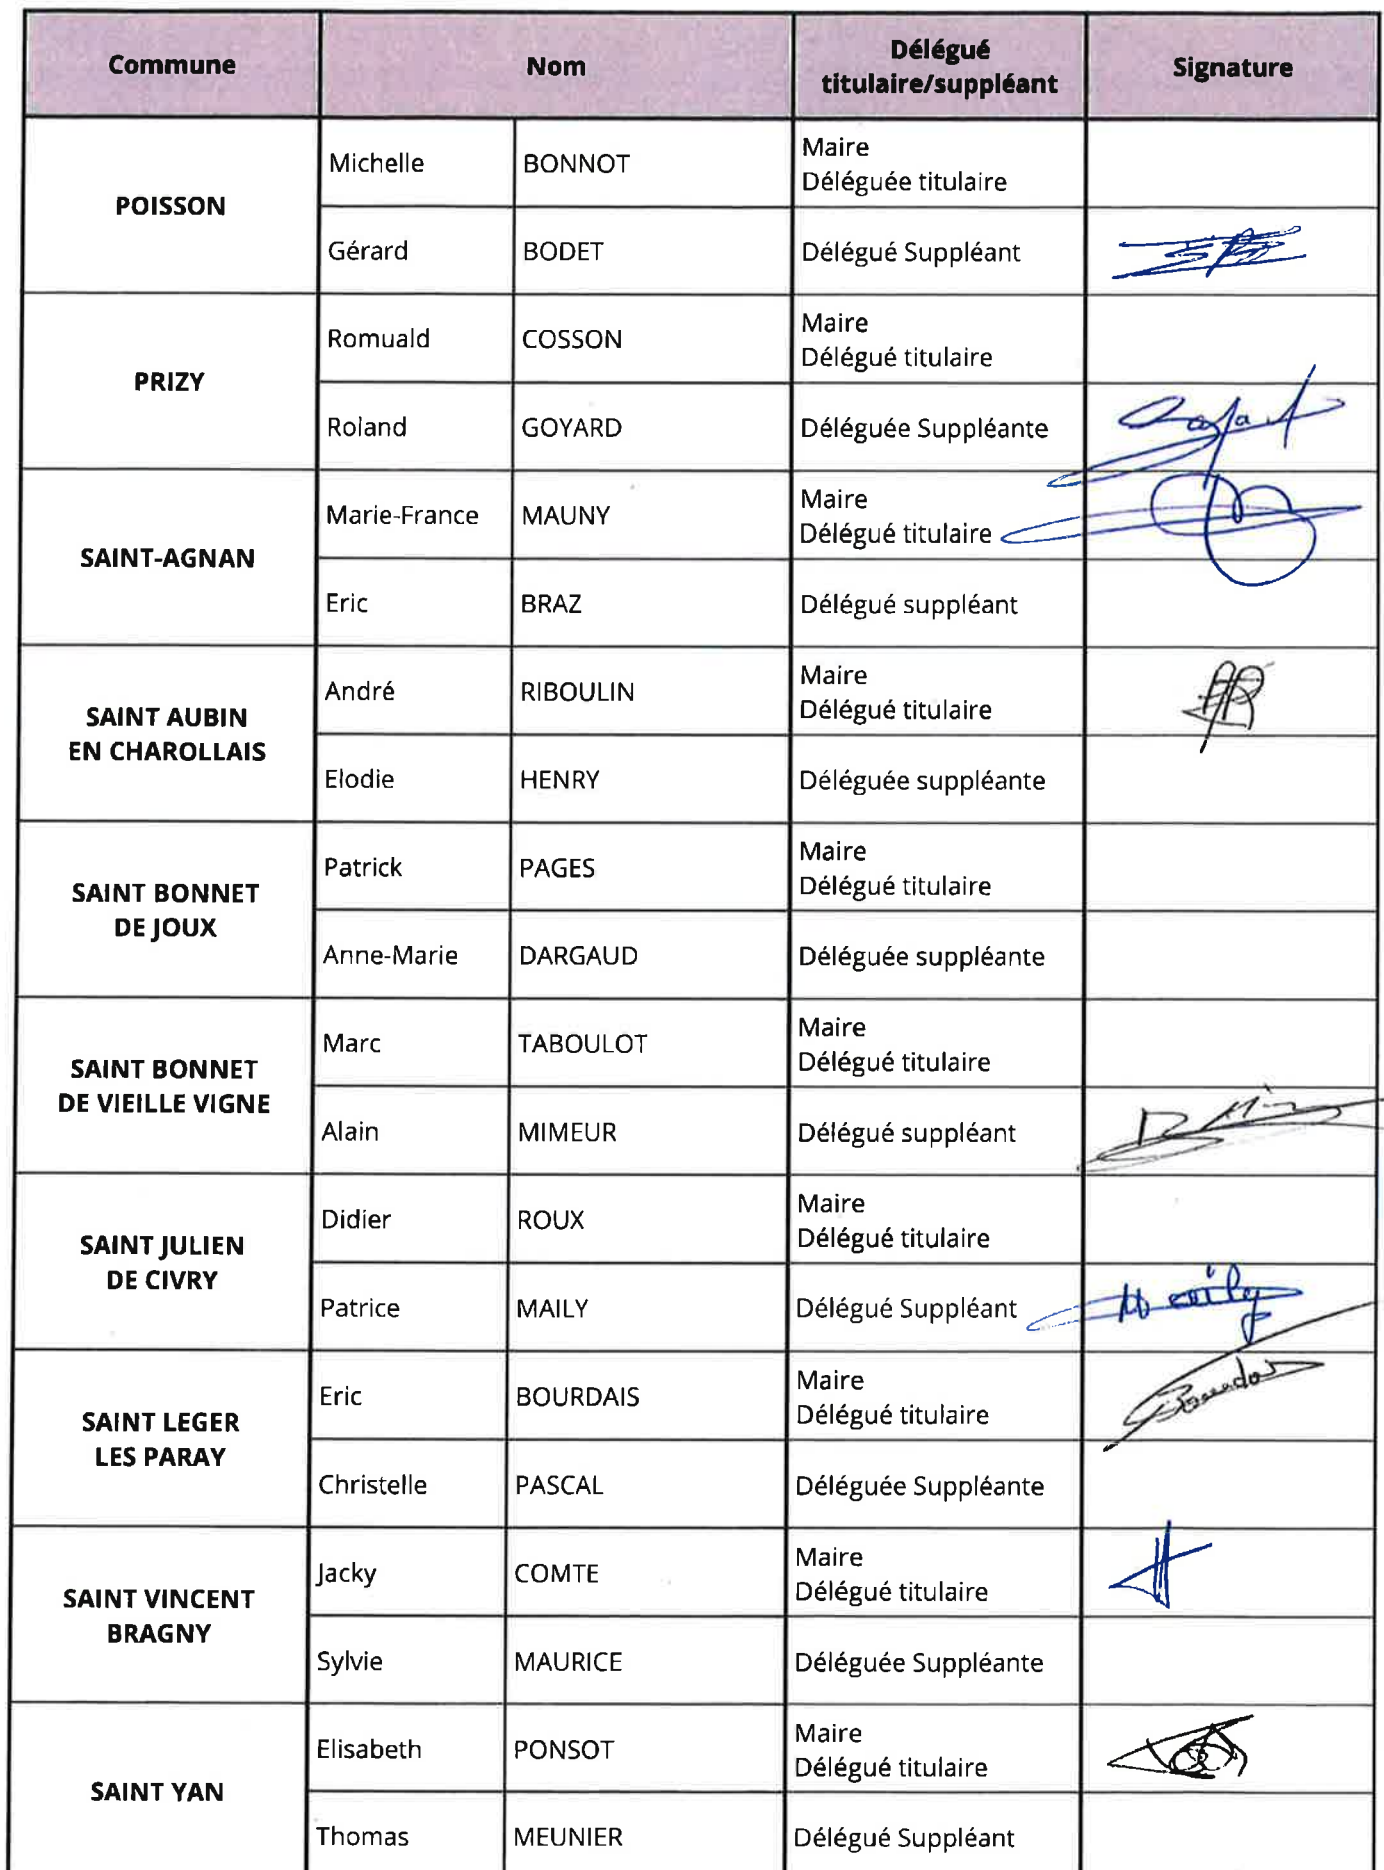 Commune
Nom
Délégué
titulaire/suppléant
Signature
POISSON
Michelle
BONNOT
Maire
Déléguée titulaire
Gérard
BODET
Délégué Suppléant
PRIZY
Romuald
COSSON
Maire
Délégué titulaire
Roland
GOYARD
Déléguée Suppléante
SAINT-AGNAN
Marie-France
MAUNY
Maire
Délégué titulaire
Eric
BRAZ
Délégué suppléant
SAINT AUBIN
EN CHAROLLAIS
André
RIBOULIN
Maire
Délégué titulaire
Elodie
HENRY
Déléguée suppléante
SAINT BONNET
DE JOUX
Patrick
PAGES
Maire
Délégué titulaire
Anne-Marie
DARGAUD
Déléguée suppléante
SAINT BONNET
DE VIEILLE VIGNE
Marc
TABOULOT
Maire
Délégué titulaire
Alain
MIMEUR
Délégué suppléant
SAINT JULIEN
DE CIVRY
Didier
ROUX
Maire
Délégué titulaire
Patrice
MAILY
Délégué Suppléant
Maily
SAINT LEGER
LES PARAY
Eric
BOURDAIS
Maire
Délégué titulaire
Christelle
PASCAL
Déléguée Suppléante
SAINT VINCENT
BRAGNY
Jacky
COMTE
Maire
Délégué titulaire
Sylvie
MAURICE
Déléguée Suppléante
SAINT YAN
Elisabeth
PONSOT
Maire
Délégué titulaire
Thomas
MEUNIER
Délégué Suppléant